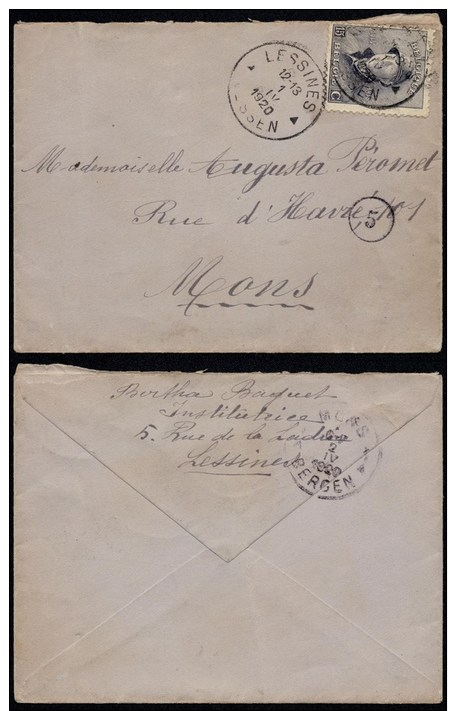 LESSINES
12-13
1
IV
1920
LESSEN
BELGIQUE
15
C
Mademoiselle Augusta Péromet
Rue d'Havré 101
5
Mons
Bertha Baquet
Institutrice
5. Rue de la
Lessines
MONS
2
IV
1920
BERGEN